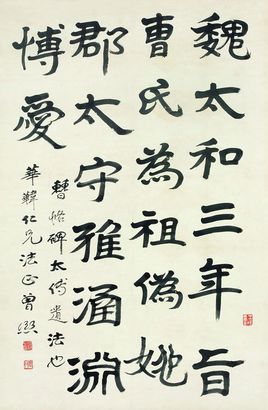 魏太和三年旨
曹氏為祖偽她
郡太守雅涵淵
愽愛
曹恪碑太傅遺法也
華韡仁兄法正曾熙